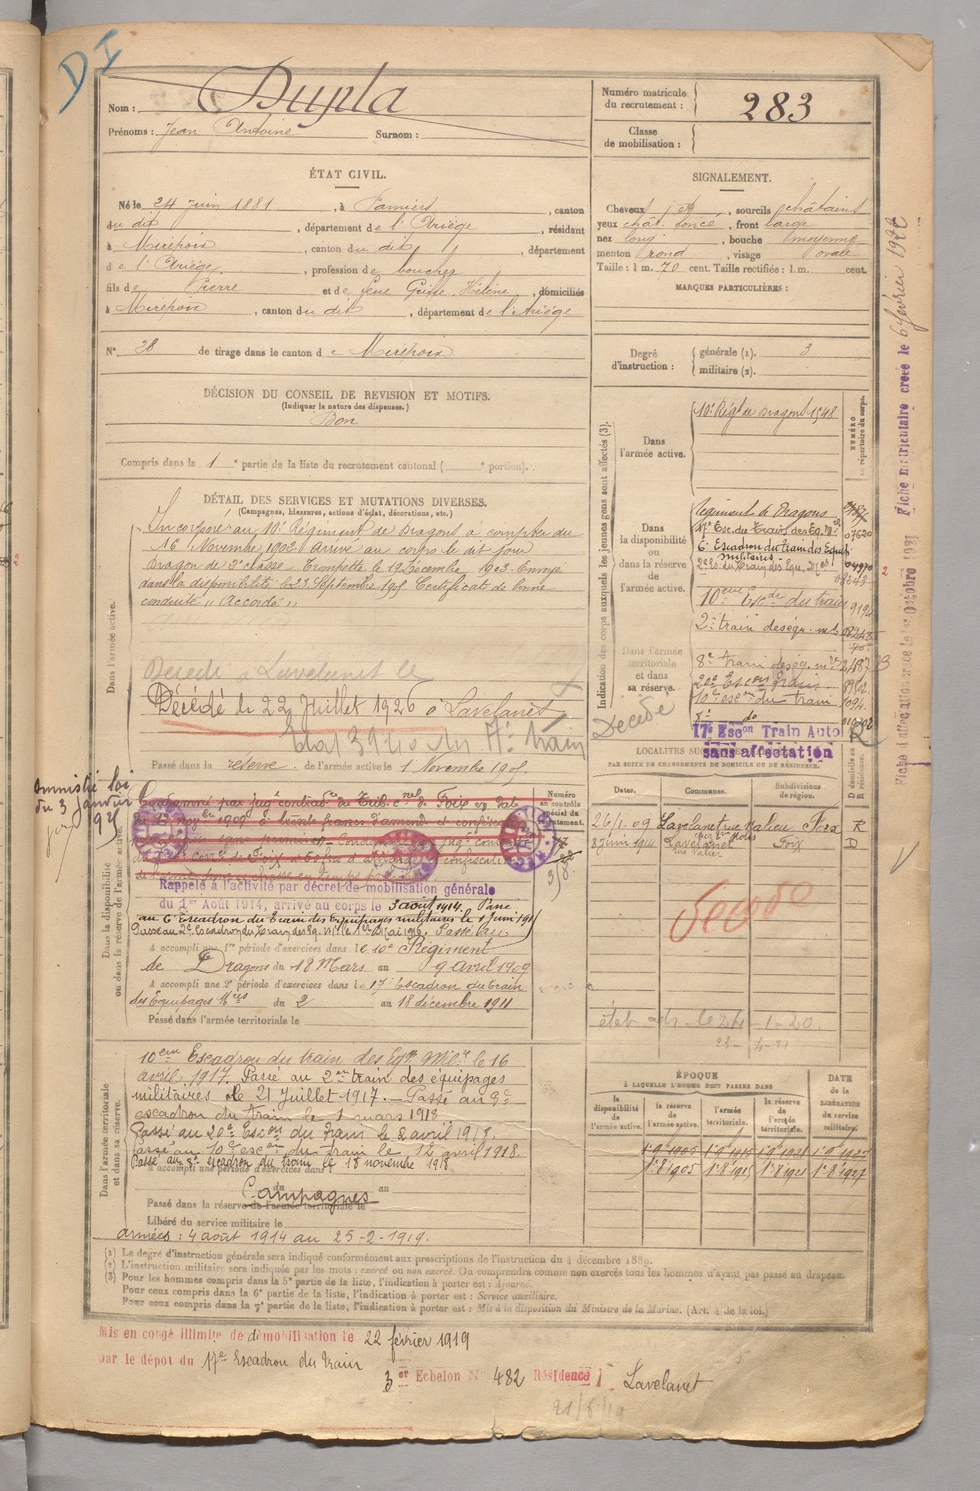 DI
Nom : Dupla
Prénoms : Jean Antoine Surnom :
Numéro matricule du recrutement : 283
Classe de mobilisation :
ÉTAT CIVIL.
Né le 24 juin 1881, à Pamiers, canton
du dit, département de l'Ariège, résidant
à Mirepoix, canton du dit, département
de l'Ariège, profession de boucher
fils de Pierre et de feue Hélène, domiciliés
à Mirepoix, canton du dit, département de l'Ariège
N° 28 de tirage dans le canton de Mirepoix
SIGNALEMENT.
Cheveux, sourcils châtains
yeux chât. foncé, front large
nez long, bouche moyenne
menton rond, visage ovale
Taille : 1 m. 70 cent. Taille rectifiée : 1 m. cent.
MARQUES PARTICULIÈRES :
Degré d'instruction : générale (1). 3
militaire (2).
DÉCISION DU CONSEIL DE REVISION ET MOTIFS.
(Indiquer la nature des dispenses.)
Bon
Compris dans la 1e partie de la liste du recrutement cantonal ( e portion).
DÉTAIL DES SERVICES ET MUTATIONS DIVERSES.
(Campagnes, blessures, actions d'éclat, décorations, etc.)
Dans l'armée active.
Incorporé au 10e Régiment de Dragons à compter du
16 Novembre 1902 Arrivé au corps le dit jour
Dragon de 2e classe. Trompette le 19 Décembre 1903. Envoyé
dans la disponibilité le 23 Septembre 1905 Certificat de bonne
conduite "Accordé"
Décédé à Lavelanet le
Décédé le 22 Juillet 1926 à Lavelanet
Passé dans la réserve de l'armée active le 1 Novembre 1905.
Amnistié loi
du 3 janvier
1925
Dans la disponibilité ou dans la réserve de l'armée active.
Condamné par jugt contradre du Trib. cnel de Foix en date
du 23 novbre 1909 à trente francs d'amende et confiscation
Rappelé à l'activité par décret de mobilisation générale
du 1er Août 1914, arrivé au corps le 3 août 1914. Passé
au 6e Escadron du Train des Equipages militaires le 1 juin 1915
Passé au 2e Escadron du Train des Eq. Mil. le 1er Mai 1916. Passé au
A accompli une 1re période d'exercices dans le 10e Régiment
de Dragons du 18 Mars au 9 avril 1909
A accompli une 2e période d'exercices dans le 17e Escadron du train
des Equipages Mres du 2 au 18 décembre 1911
Passé dans l'armée territoriale le
Numéro au contrôle spécial du recrutement.
Dans l'armée territoriale et dans sa réserve.
10eme Escadron du train des Eqges Milres le 16
avril 1917. Passé au 2me train des équipages
militaires le 21 Juillet 1917. - Passé au 8e
escadron du train le 1 mars 1918
Passé au 20e Escon du Train le 2 avril 1918.
Passé au 10e escon du train le 12 avril 1918.
Passé au 8e escadron du train le 18 novembre 1918
A accompli une période d'exercices dans
du au
Campagnes
Passé dans la réserve de l'armée territoriale le
Libéré du service militaire le
armées : 4 août 1914 au 25-2-1919.
Indication des corps auxquels les jeunes gens sont affectés (3).
NUMÉRO au répertoire du corps.
Dans l'armée active. 10e Régt de Dragons 1548
Dans la disponibilité ou dans la réserve de l'armée active.
Régiment de Dragons
17e Esc. du Train des Eq. Mres 07620
6e Escadron du train des Equip. militaires 04970
2e Es. du Train des Equ. Mres
10eme Escdr du train 9194
2e train des équ. mil.
Dans l'armée territoriale et dans sa réserve.
8e train des éq. mres
20e Escon Train.
10e escon du train 1094
8e do
Décédé
17e Escon Train Auto
sans affectation
PAR SUITE DE CHANGEMENTS DE DOMICILE OU DE RÉSIDENCE.
Dates. Communes. Subdivisions de région.
26/1.09 Lavelanet Foix R
8 juin 1914 Lavelanet Foix D
Décédé
ÉPOQUE
À LAQUELLE L'HOMME DOIT PASSER DANS
la disponibilité de l'armée active.
la réserve de l'armée active.
l'armée territoriale.
la réserve de l'armée territoriale.
DATE de la LIBÉRATION du service militaire.
1.8.1905 1.8.1915 1.8.1921 1.8.1927
(1) Le degré d'instruction générale sera indiqué conformément aux prescriptions de l'instruction du 4 décembre 1889.
(2) L'instruction militaire sera indiquée par les mots : exercé ou non exercé. On comprendra comme non exercés tous les hommes n'ayant pas passé au drapeau.
(3) Pour les hommes compris dans la 5e partie de la liste, l'indication à porter est : Ajourné.
Pour ceux compris dans la 6e partie de la liste, l'indication à porter est : Service auxiliaire.
Pour ceux compris dans la 7e partie de la liste, l'indication à porter est : Mis à la disposition du Ministre de la Marine. (Art. 4 de la loi.)
Mis en congé illimité de démobilisation le 22 février 1919
par le dépot du 17e Escadron du train
3er Echelon N° 482 Résidence Lavelanet
21/8/19
Fiche matriculaire créée le 6 février 1922